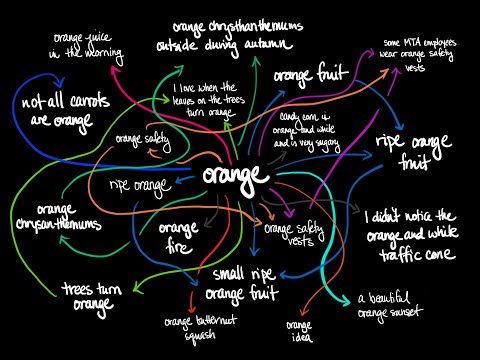 orange juice
in the morning
orange chrysthanthemums
outside during autumn
some MTA employees
wear orange safety
vests
not all carrots
are orange
I love when the
leaves on the trees
turn orange
orange fruit
candy corn is
orange and white
and is very sugary
orange safety
ripe orange
fruit
ripe orange
orange
orange
chrysanthemums
orange
fire
orange safety
vests
I didn't notice the
orange and white
traffic cone
trees turn
orange
small ripe
orange fruit
a beautiful
orange sunset
orange butternut
squash
orange
idea